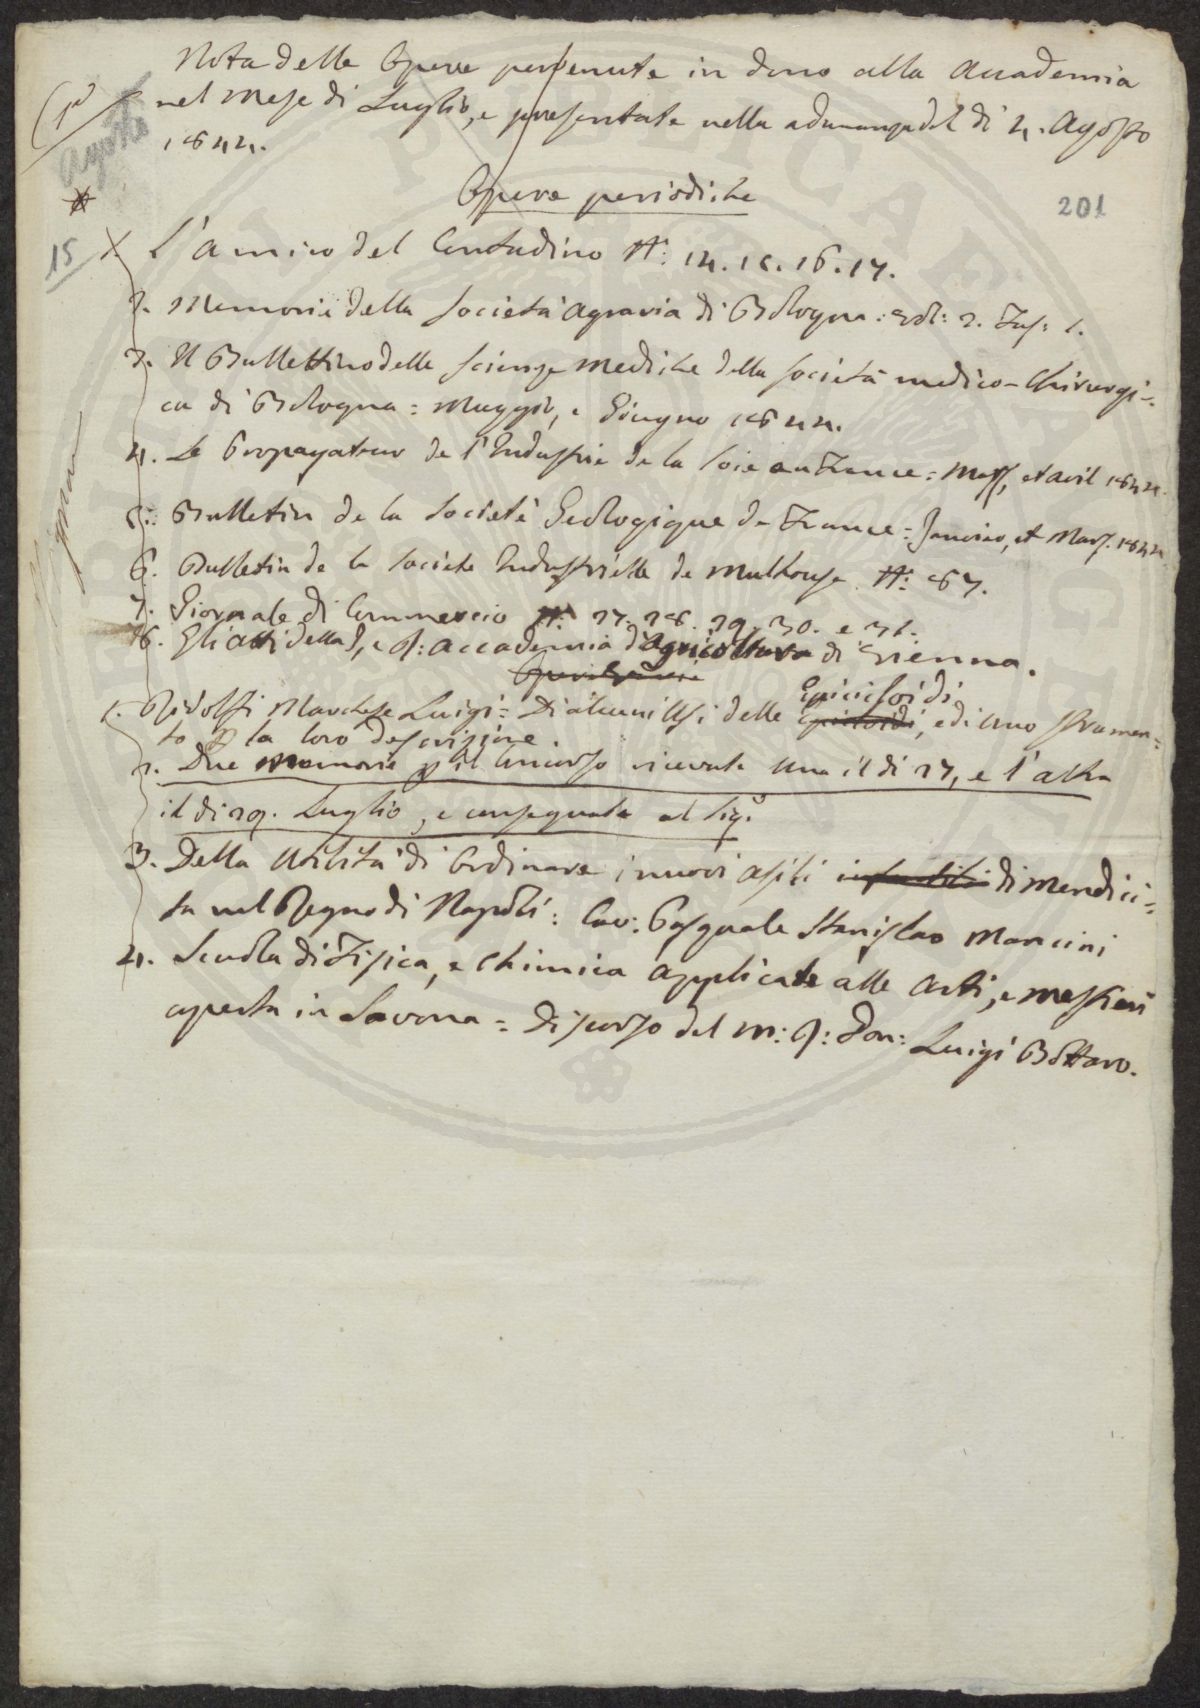 Nota delle Opere pervenute in dono alla Accademia
nel Mese di Luglio, e presentate nella adunanza del di 4. Agosto
1844.
Agosto
Opere periodiche
201
15
L'amico del Contadino N.: 14. 15. 16. 17.
2. Memorie della Società Agraria di Bologna: Vol: 2. Fas: 1.
3. Il Bullettino delle Scienze Mediche della Società medico-Chirurgi=
ca di Bologna = Maggio, e Giugno 1844.
4. Le Propagateur de l'Industrie de la Soie en France = Mars, et avril 1844.
5. Bulletin de la Societé Geologique de France = Janvier, et Mars. 1844
6. Bulletin de la Societe Industrielle de Mulhouse. N.: 87.
7. Giornale di Commercio N.: 27. 28. 29. 30. e 31.
8. Gli atti della I, e R: Accademia d'Agricoltura di Vienna.
Opere varie
Epicicloidi
1. Ridolfi Marchese Luigi = Di alcuni Usi delle Epicicloidi, e di uno strumen=
to p la loro descrizione.
2. Due Memorie p il Concorso ricevute una il di 27, e l'altra
il di 29. Luglio, e consegnate al Sig.
3. Della Utilità di Ordinare i nuovi asili infantili di Mendici=
ta nel Regno di Napoli: Cav: Pasquale Stanislao Mancini
4. Scuola di Fisica, e Chimica applicate alle Arti, e Mestieri
aperta in Savona = Discorso del M: R: Don: Luigi Bottaro.